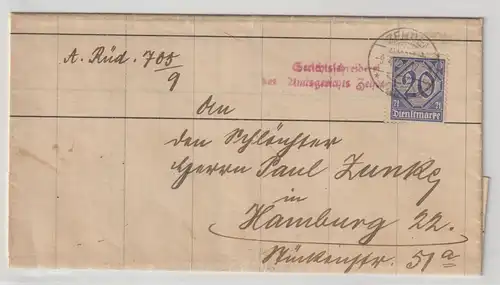 A. Rüd. 705/9
Gerichtsschreiber
des Amtsgerichts
20
21 21
Dienstmarke
An
den Schlächter
Herrn Paul Zunke
in
Hamburg 22.
Stückenstr. 51a